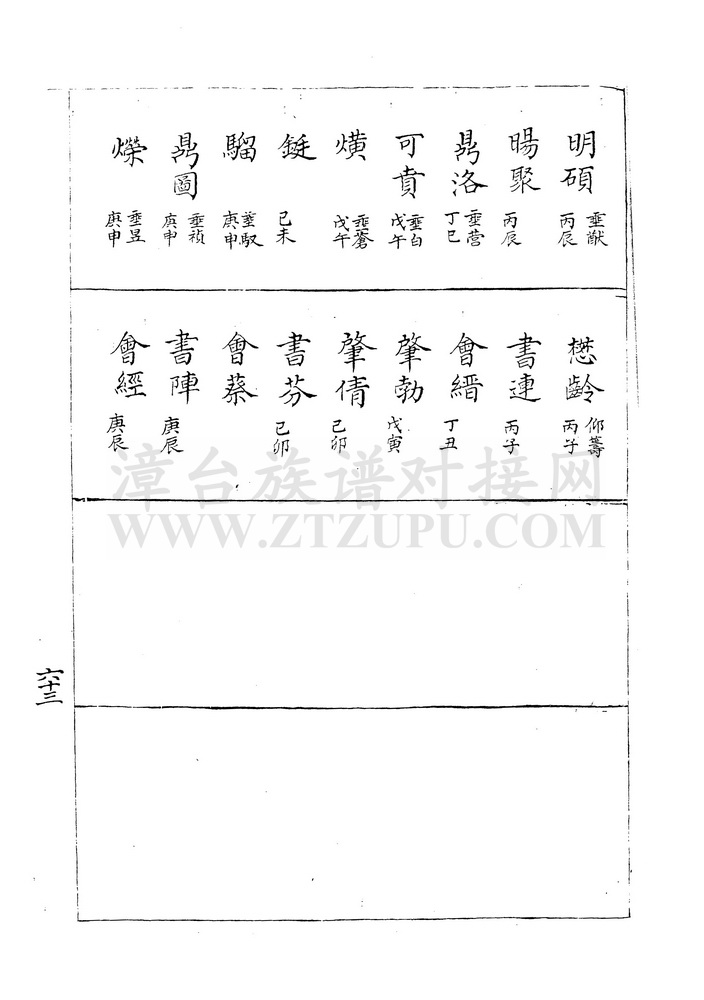 明碩 垂猷 丙辰
暘聚 丙辰
鼎洛 垂营 丁巳
可賁 垂白 戊午
熿 垂蒼 戊午
鋌 己未
騮 垂馭 庚申
鼎圖 垂禎 庚申
爍 垂昱 庚申
懋齡 仰籌 丙子
書連 丙子
會縉 丁丑
肇勃 戊寅
肇倩 己卯
書芬 己卯
會蔡
書陣 庚辰
會經 庚辰
漳台族谱对接网
WWW.ZTZUPU.COM
六十三